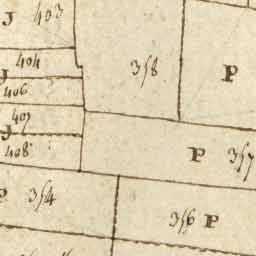 J 403
404
J
358 P
406
407
J
408
P 357
P 354
356 P